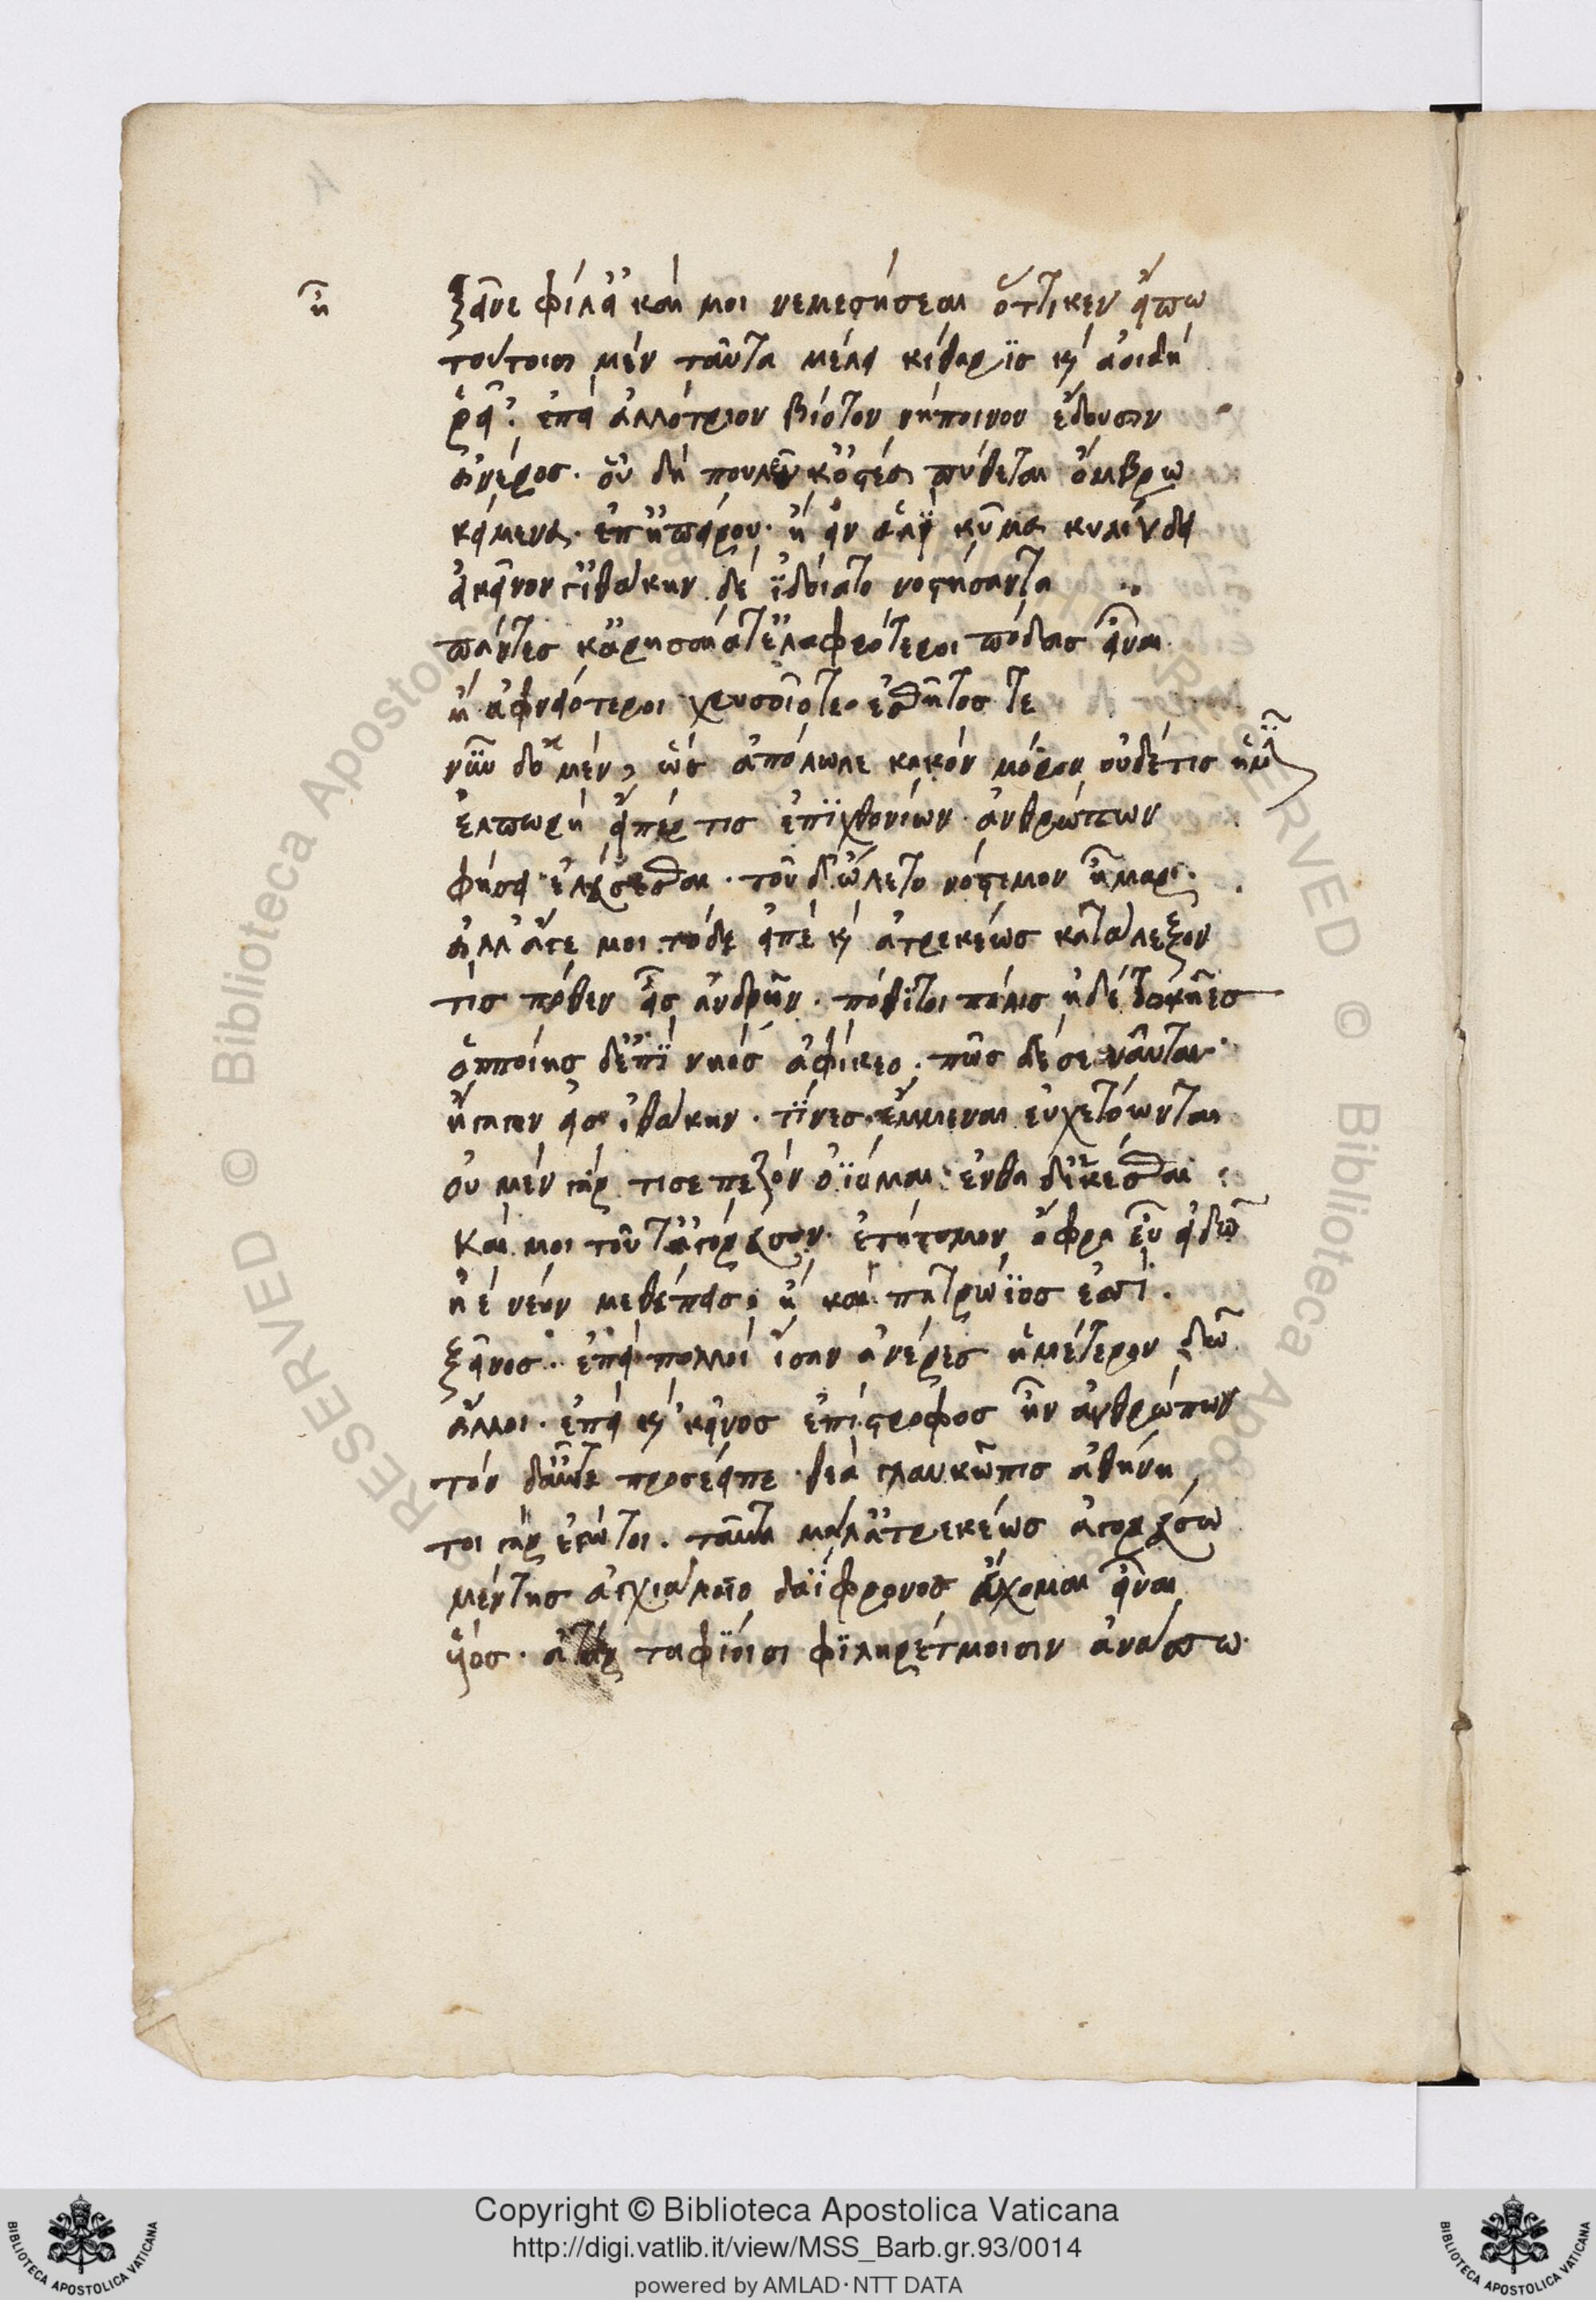 ἦ
ξεῖνε φίλ' εἰ καί μοι νεμεσήσεαι ὅττι κεν εἴπω
τούτοισι μὲν ταῦτα μέλει κίθαρϊς κ' ἀοιδή
ῥεῖ'· ἐπεὶ ἀλλότριον βίοτον νήποινον ἔδουσιν
ἀνέρος· οὗ δή που λεύκ' ὀστέα πύθεται ὄμβρω
κείμενα· ἐπ' ἠπείρου· ἢ εἰν ἁλῒ κῦμα κυλίνδει
εἰ κεῖνον γ' ἰθάκην δὲ ἰδοίατο νοστήσαντα
πάντες κ' ἀρησαίατ' ἐλαφρότεροι πόδας εἶναι
ἢ ἀφνειότεροι χρυσοῖό τε ἐσθῆτός τε
νῦν δ' ὁ μὲν, ὣς ἀπόλωλε κακὸν μόρον οὐδέ τις ἡμῖν
ἐλπωρή εἴπέρ τις ἐπιχθονίων ἀνθρώπων
φήσει ἐλεύσεσθαι· τοῦ δ' ὤλετο νόστιμον ἦμαρ·
ἀλλ' ἄγε μοι τόδε εἰπὲ κ' ἀτρεκέως κατάλεξον
τίς πόθεν εἶς ἀνδρῶν· πόθϊ τοι πόλις ἠδὲ τοκῆες
ὁπποίης δ' ἐπῒ νηὸς ἀφίκεο· πῶς δέ σε ναῦται
ἤγαγον εἰς ἰθάκην· τίνες ἔμμεναι εὐχετόωνται
οὐ μὲν γάρ τί σε πεζὸν ὀΐομαι ἐνθάδ' ἱκέσθαι
καί μοι τοῦτ' ἀγόρευσον ἐτήτυμον ὄφρα εὖ εἰδῶ
ἠὲ νέον μεθέπεις; ἢ καὶ πατρώϊος ἐσσὶ·
ξεῖνος· ἐπεὶ πολλοὶ ἴσαν ἀνέρες ἡμέτερον δῶ
ἄλλοι· ἐπεὶ κ' κεῖνος ἐπίστροφος ἦν ἀνθρώπων
τὸν δ' αὖτε προσέειπε θεὰ γλαυκῶπις ἀθήνη
τοι γὰρ ἐγώ τοι· ταῦτα μάλ' ἀτρεκέως ἀγορεύσω
μέντης ἀγχιάλοιο δαΐφρονος εὔχομαι εἶναι
ὑιός· ἀτὰρ ταφϊίοισι φϊληρέτμοισιν ἀνάσσω·
Copyright © Biblioteca Apostolica Vaticana
http://digi.vatlib.it/view/MSS_Barb.gr.93/0014
powered by AMLAD·NTT DATA